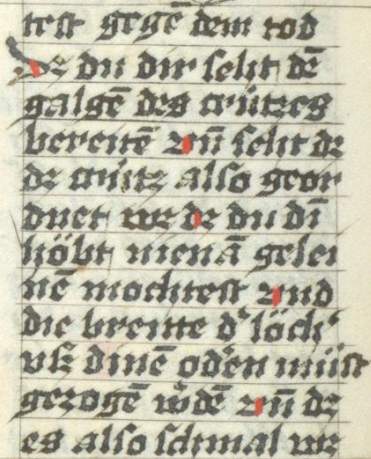 test gegē dem tod
Dz du dir selit dē
galgē des crützes
bereitē vn̄ selit dz
dz crütz also geor
dnet wz dz du dī
höbt nienā gelei
nē mochtest vnd
die breite dˢ löchˢ
vſz dinē odˢen müst
gezogē wˢdē vn̄ dz
es also schmal wz